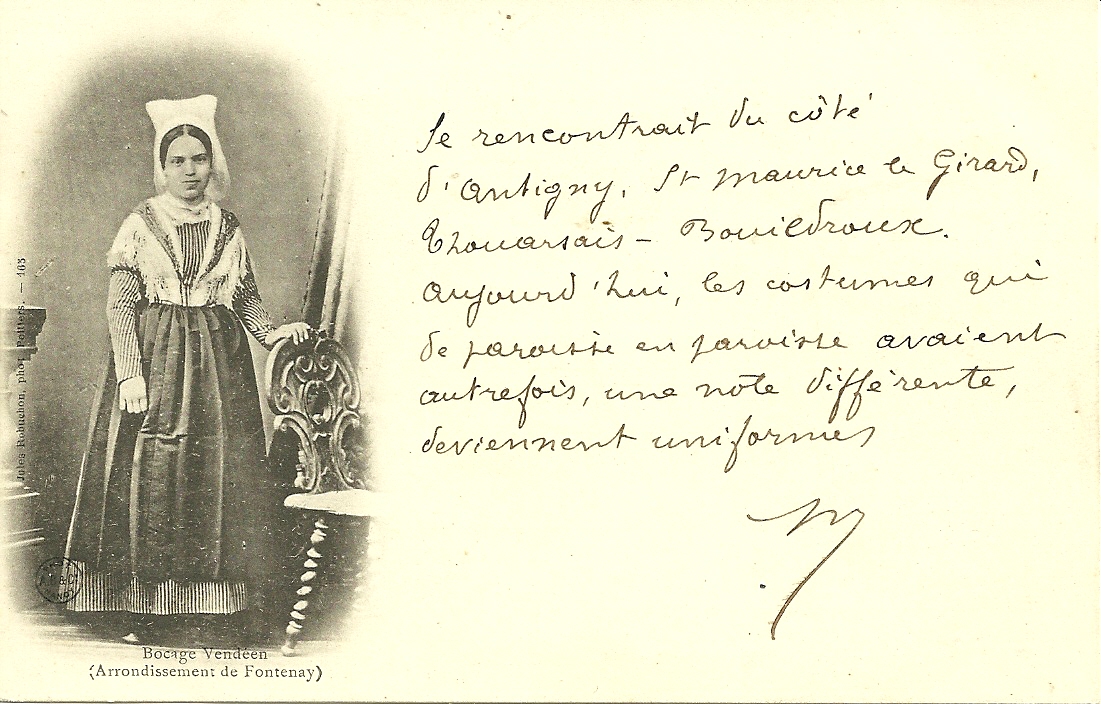 Se rencontrait du côté
d'Antigny, St Maurice le Girard,
Thouarsais - Bouildroux.
Aujourd'hui, les costumes qui
de paroisse en paroisse avaient
autrefois, une note différente,
deviennent uniformes
Jules Robuchon, phot. Poitiers. — 165
Bocage Vendéen
(Arrondissement de Fontenay)